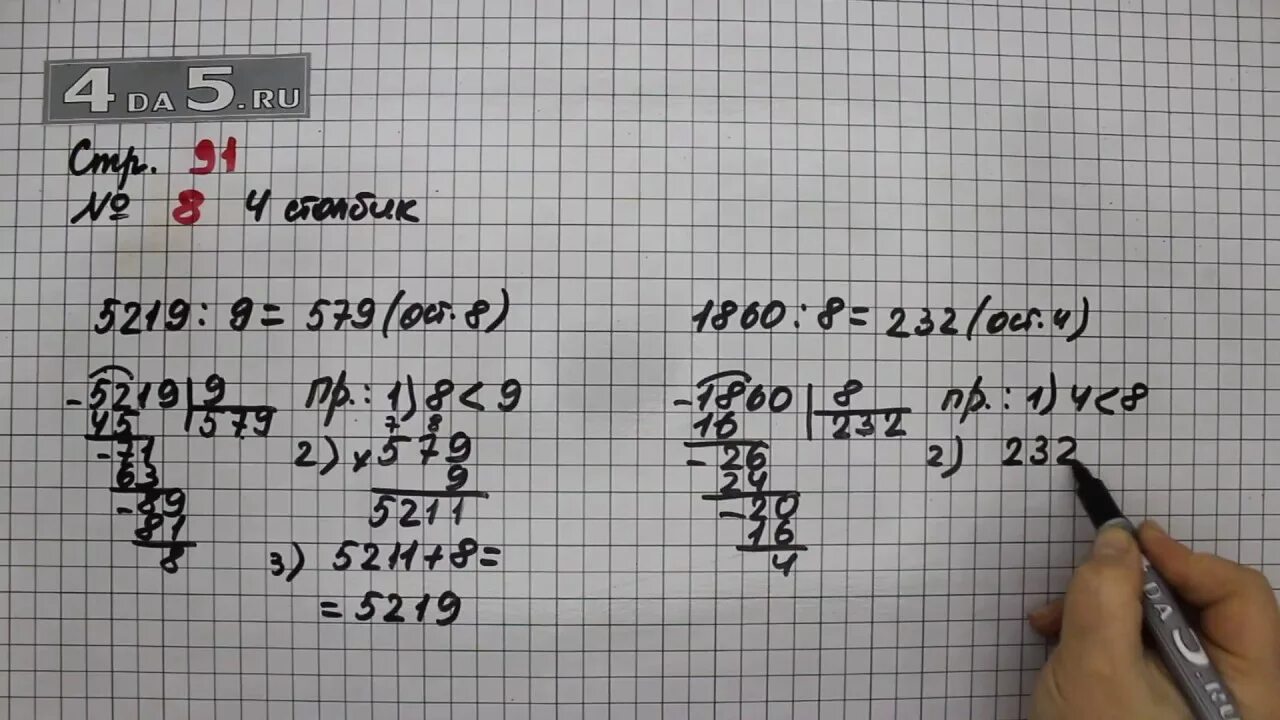 4DA5.RU
Стр. 91
№ 8 4 столбик
5219 : 9 = 579 (ост. 8)
-5219 | 9
45 | 579
-71
63
-89
81
8
пр.: 1) 8 < 9
7 8
2) x 579
9
5211
3) 5211 + 8 =
= 5219
1860 : 8 = 232 (ост. 4)
-1860 | 8
16 | 232
-26
24
-20
16
4
пр.: 1) 4 < 8
2) 232
DA 5.RU